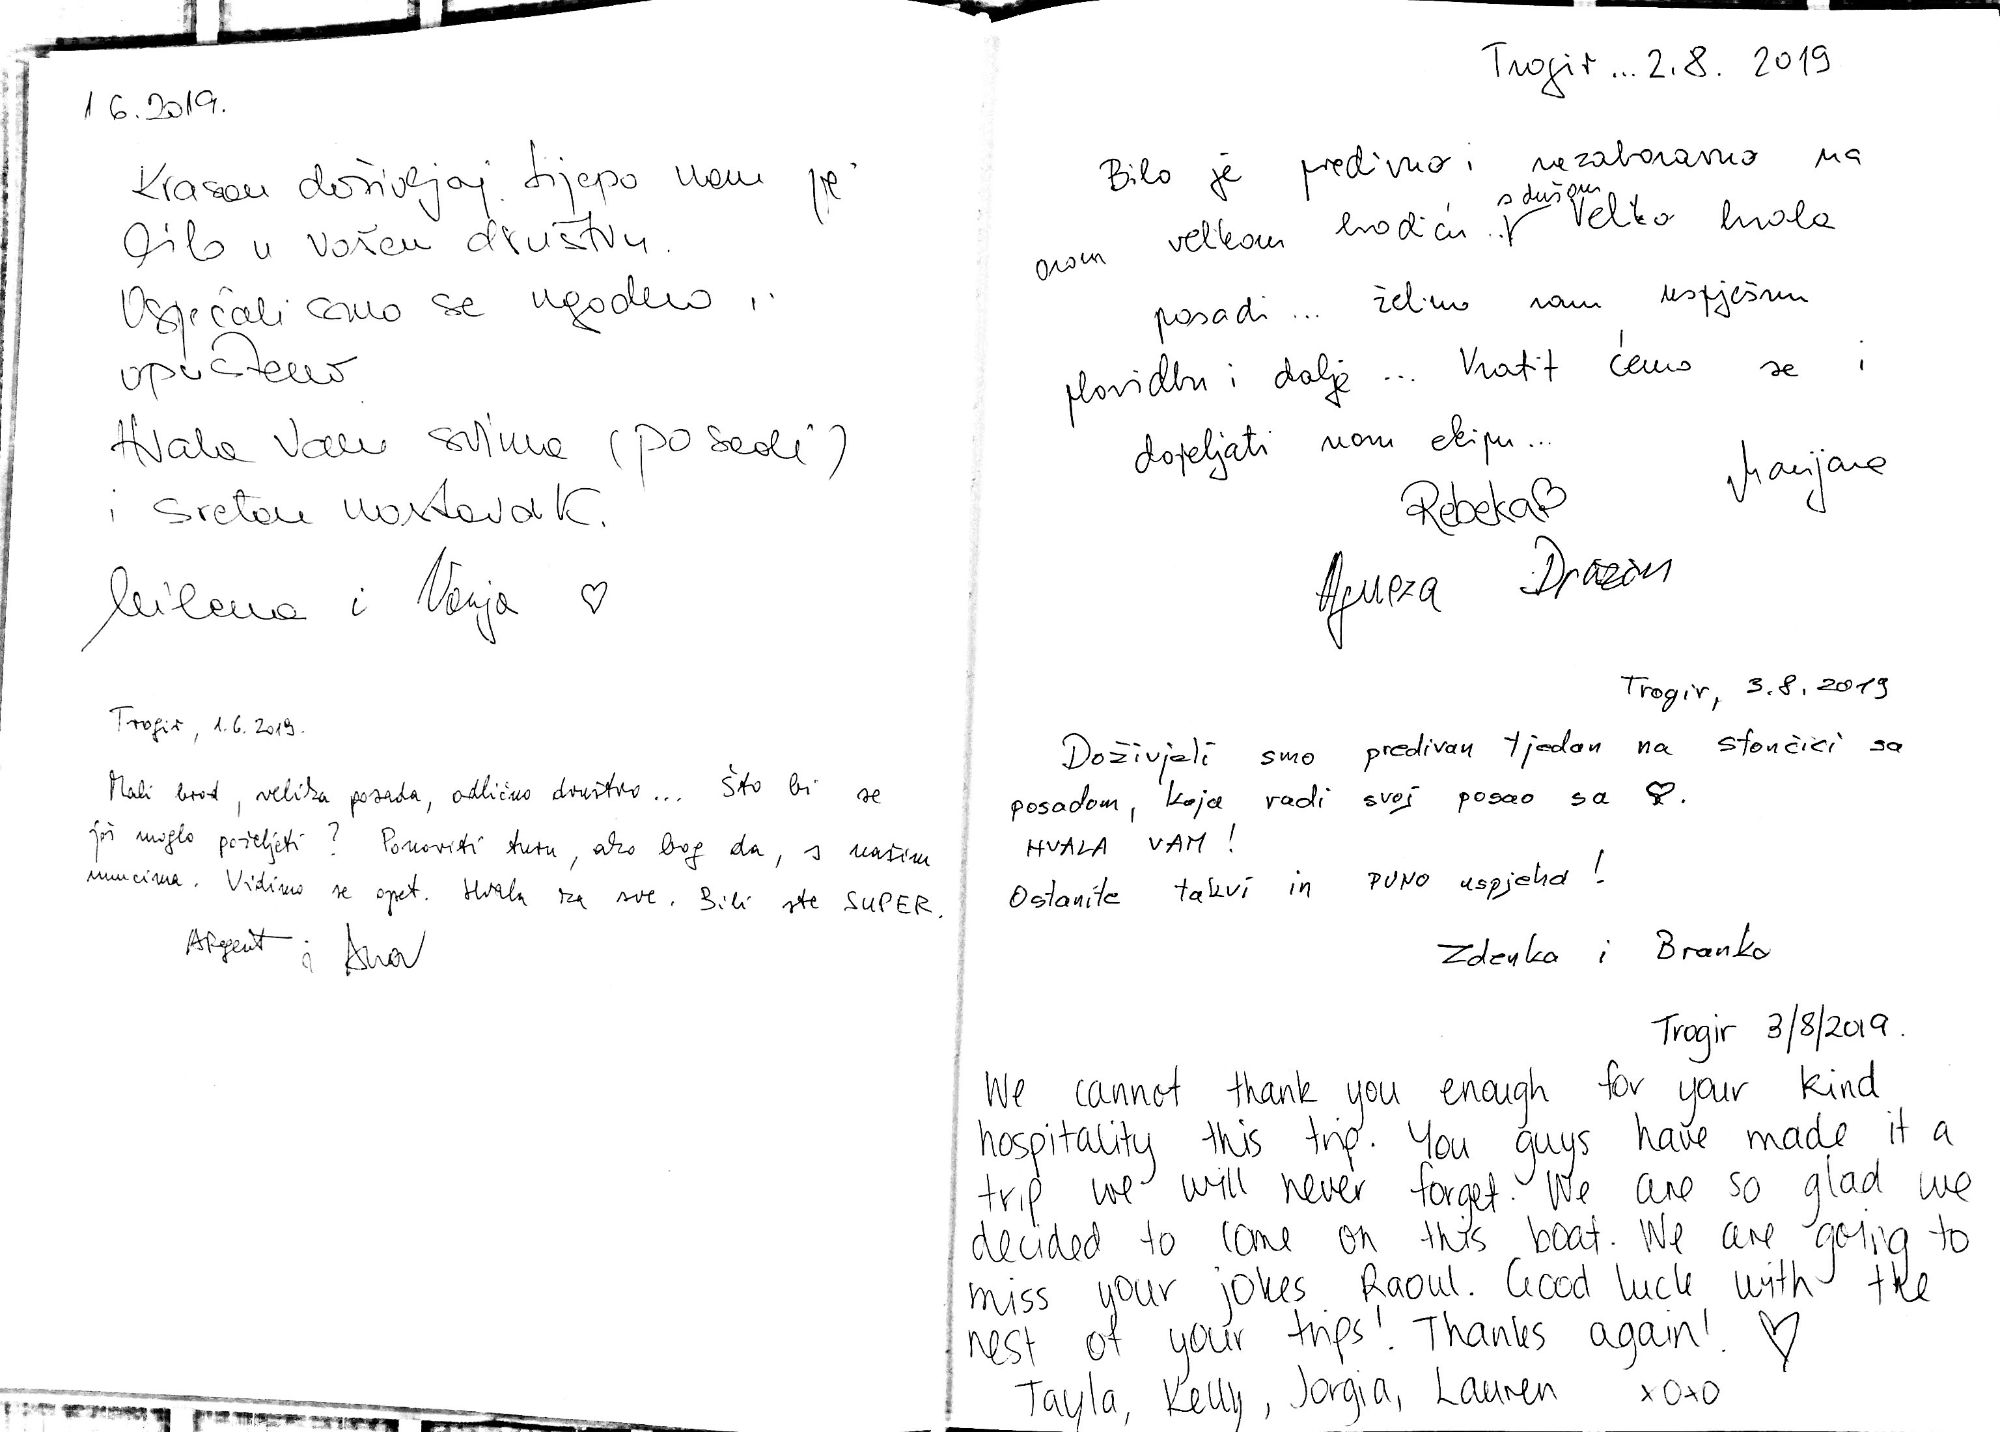 1 6.2019.
Krasan doživljaj. Lijepo nam je
bilo u vašem društvu.
Osjećali smo se ugodno i
opušteno
Hvala Vam svima (posadi)
i sretan nastavak.
Milena i Vanja ♡
Trogir, 1.6.2019.
Mali brod, velika posada, odlično društvo... Što bi se
još moglo poželjeti? Ponoviti turu, ako bog da, s našim
unucima. Vidimo se opet. Hvala za sve. Bili ste SUPER.
Argent i Ana
Trogir ... 2.8. 2019
Bilo je predivno i nezaboravno na
ovom velkom brodiću s dušom Veliko hvala
posadi... želimo vam uspješnu
plovidbu i dalje ... Vratit ćemo se i
doželjeti vam ekipu...
Marijane
Rebeka♡
Agneza Dražen
Trogir, 3.8.2019
Doživjeli smo predivan tjedan na stončici sa
posadom, koja radi svoj posao sa ♡.
HVALA VAM!
Ostanite takvi in PUNO uspjeha!
Zdenka i Branko
Trogir 3/8/2019.
We cannot thank you enough for your kind
hospitality this trip. You guys have made it a
trip we will never forget. We are so glad we
decided to come on this boat. We are going to
miss your jokes Raoul. Good luck with the
rest of your trips! Thanks again! ♡
Tayla, Kelly, Jorgia, Lauren xoxo